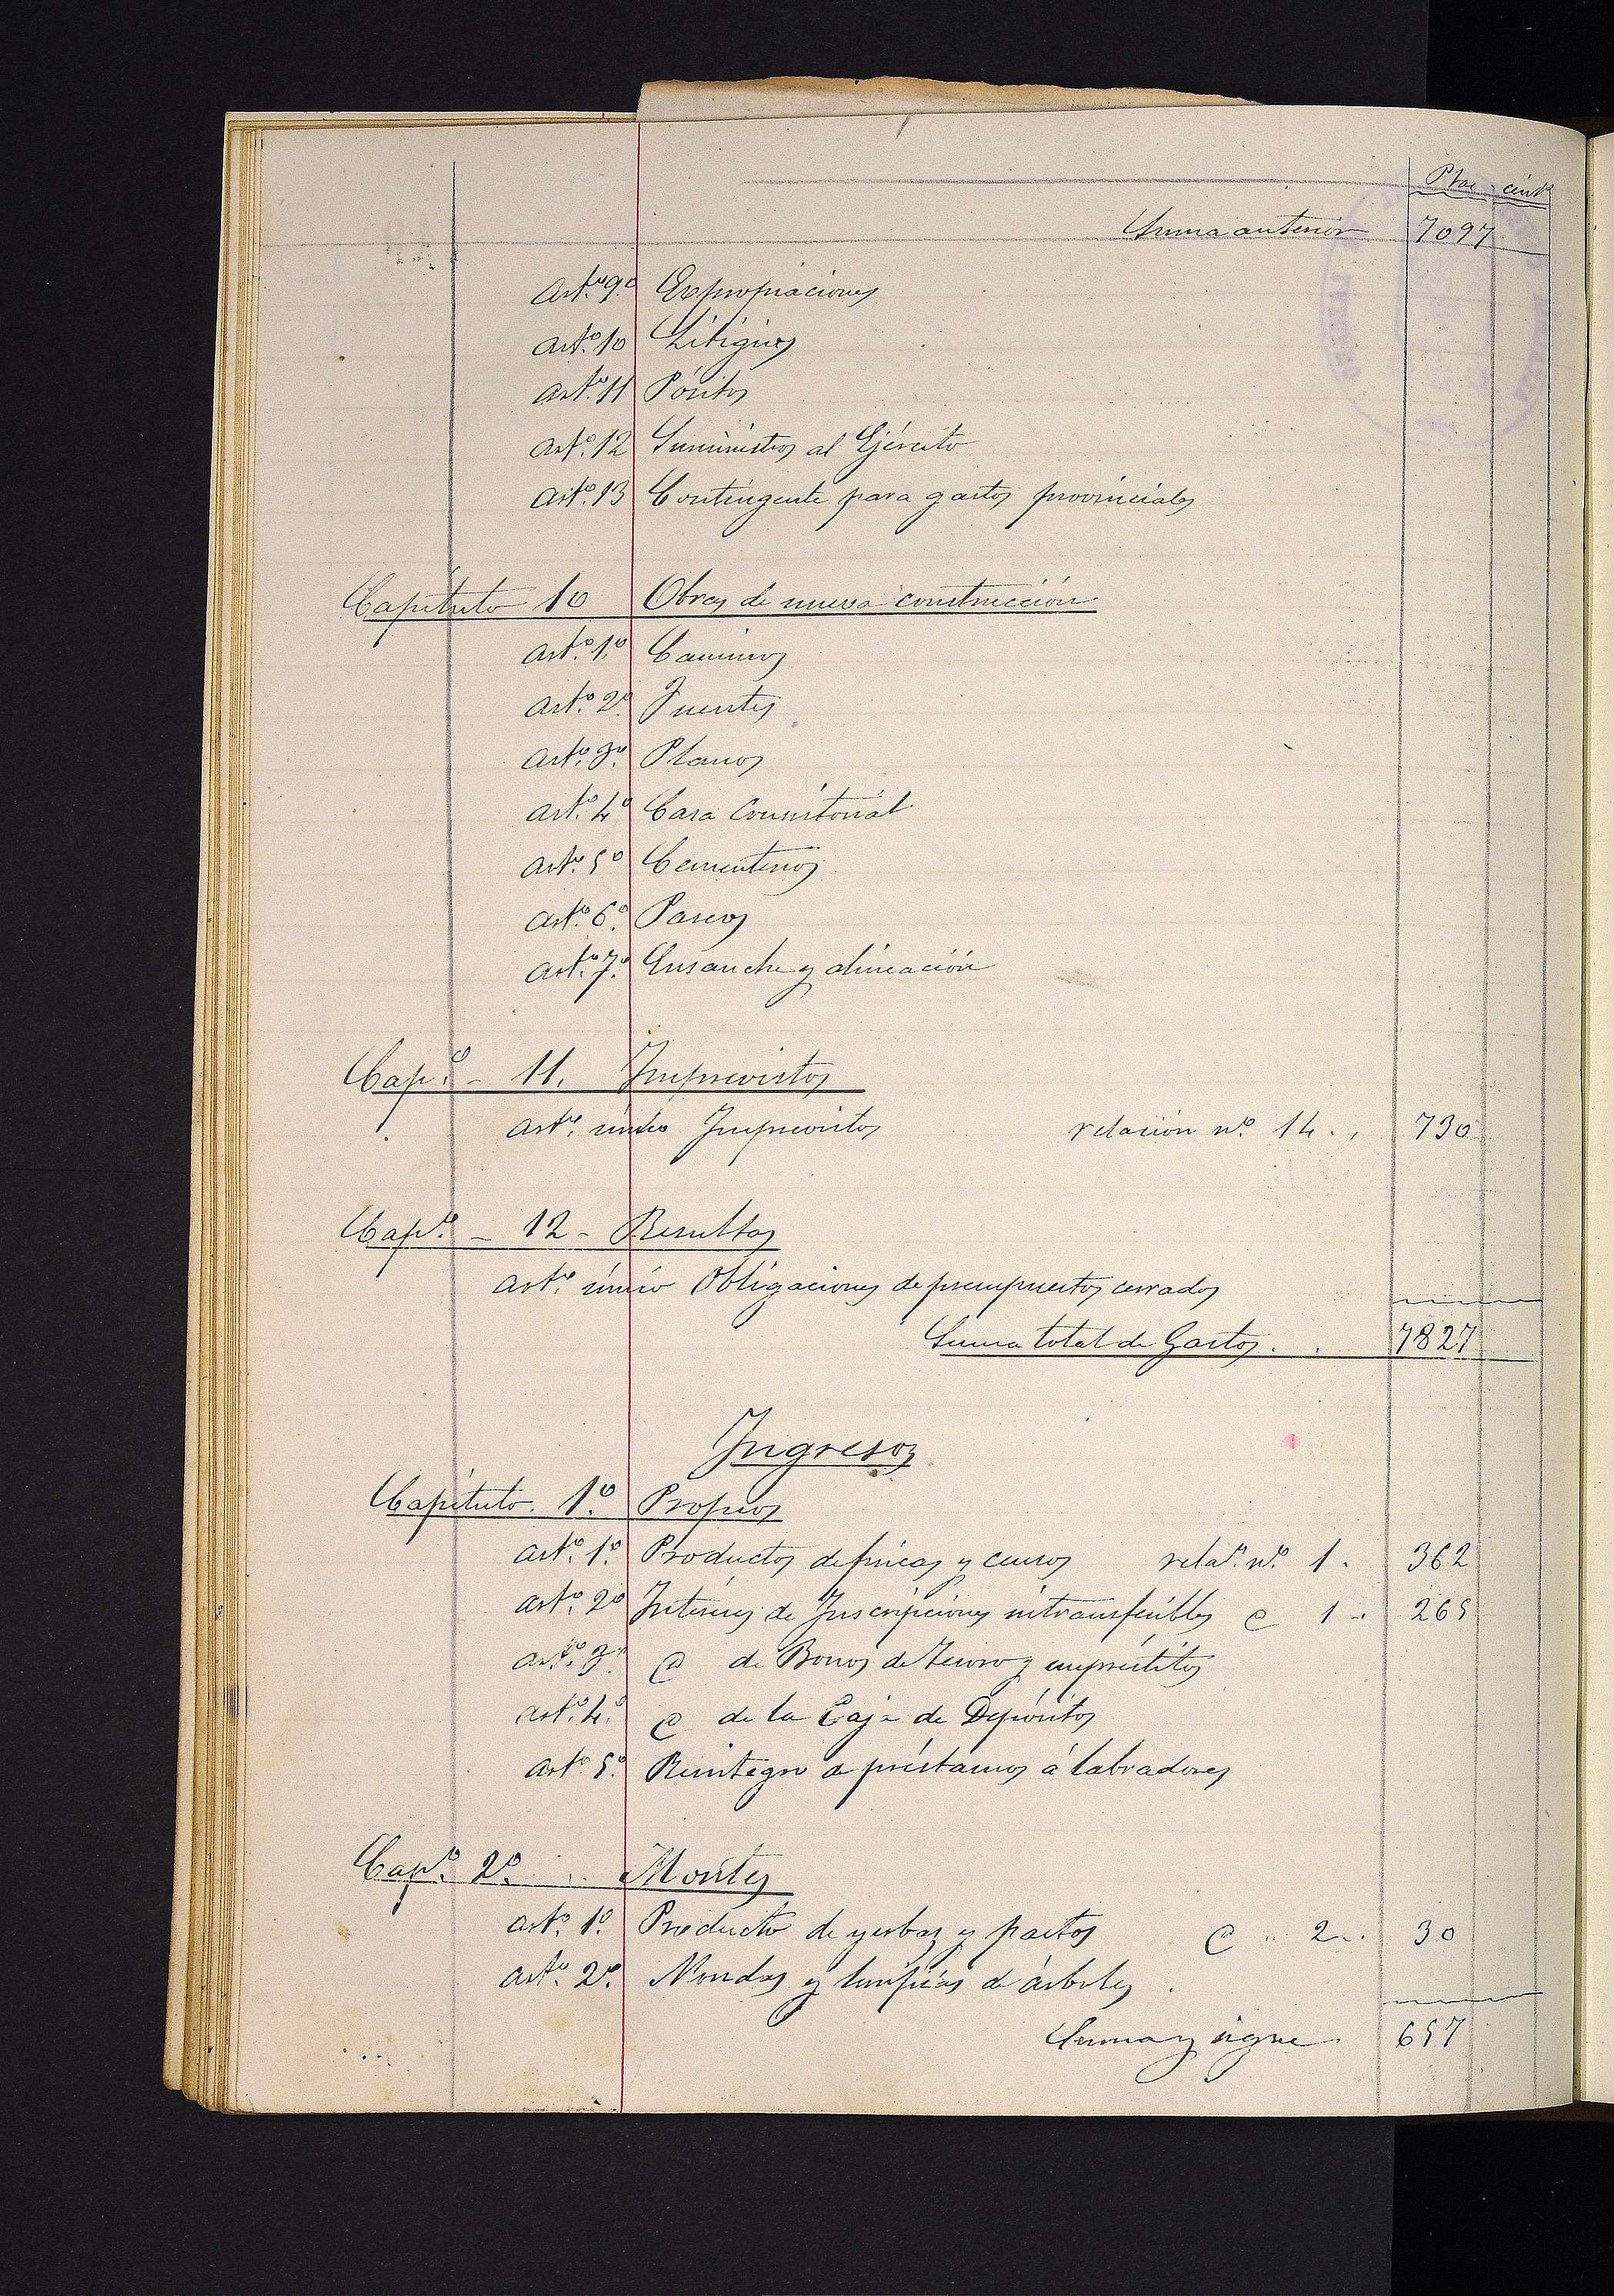 Ptas cént.s
Suma anterior 7097
Art.º 9.º Expropiaciones
Art.º 10 Litigios
Art.º 11 Pósitos
Art.º 12 Suministros al Ejército
Art.º 13 Contingente para gastos provinciales
Capítulo 10 Obras de nueva construcción.
Art.º 1.º Caminos
Art.º 2.º Fuentes
Art.º 3.º Planos
Art.º 4.º Casa Consistorial
Art.º 5.º Cementerios
Art.º 6.º Paseos
Art.º 7.º Ensanche y alineación
Cap.º - 11. Imprevistos
Art.º único Imprevistos relación n.º 14 . . 730
Cap.º - 12 - Resultas
Art.º único Obligaciones de presupuestos cerrados
Suma total de Gastos . . 7827
Ingresos
Capítulo 1.º Propios
Art.º 1.º Productos de fincas y censos relaº. n.º 1 . 362
Art.º 2.º Intereses de Inscripciones intransferibles @ 1 . 265
Art.º 3.º @ de Bonos de Tesoro y empréstitos
Art.º 4.º @ de la Caja de Depósitos
Art.º 5.º Reintegro a préstamos á labradores
Cap.º 2.º . . Montes
Art.º 1.º Producto de yerbas y pastos @ " 2 . . 30
Art.º 2.º Mondas y limpias de árboles .
Suma y sigue 657